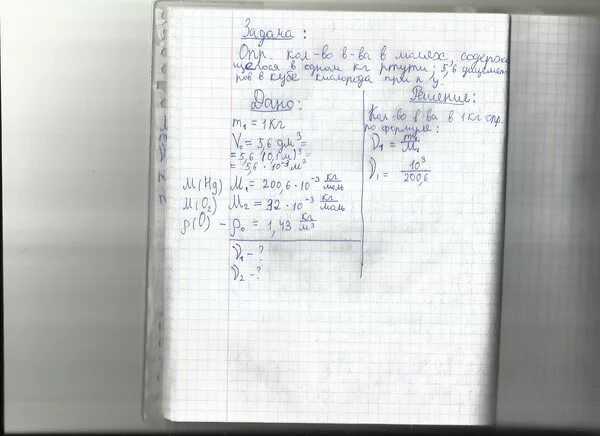 Задача:
Опр. кол-во в-ва в молях, содержа
щегося в одном кг ртути; 5,6 дециме
ров в кубе кислорода при н. у.
Дано:
m₁ = 1 кг
V₀ = 5,6 дм³ =
= 5,6 (0,1 м)³ =
= 5,6 · 10⁻³ м³
M(Hg) M₁ = 200,6 · 10⁻³ кг/моль
M(O₂) M₂ = 32 · 10⁻³ кг/моль
ρ(O) - ρ₀ = 1,43 кг/м³
ν₁ - ?
ν₂ - ?
Решение:
Кол-во в-ва в 1 кг опр.
по формуле:
ν₁ = m₁/M₁
ν₁ = 10³/200,6